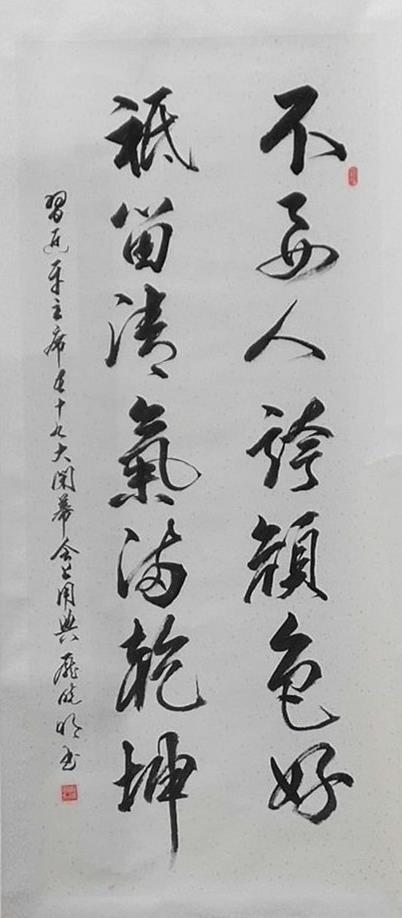 不要人誇顏色好
祗留清氣滿乾坤
習近平主席在十九大閉幕會上用典 龐曉明書